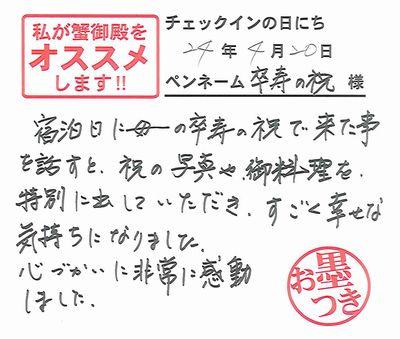 私が蟹御殿を
オススメ
します!!
チェックインの日にち
24年4月20日
ペンネーム 卒寿の祝 様
宿泊日に母の卒寿の祝で来た事
を話すと、祝の写真や、御料理を、
特別に出していただき、すごく幸せな
気持ちになりました。
心づかいに非常に感動
しました。
お墨つき